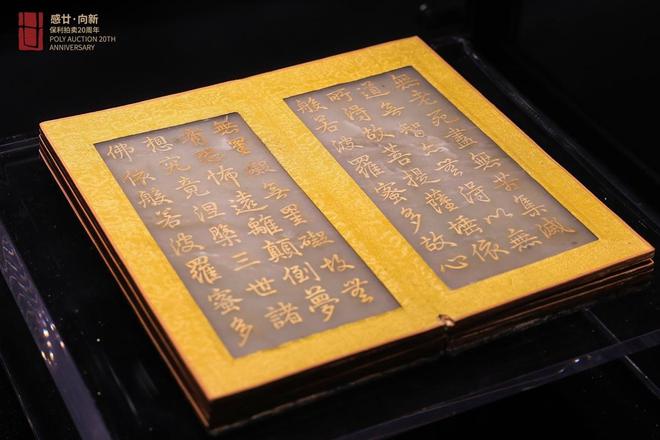 感廿·向新
保利拍卖20周年
POLY AUCTION 20TH
ANNIVERSARY
無老死盡無苦集滅
道無智亦無得以無
所得故菩提薩埵依
般若波羅蜜多故心
無罣礙無罣礙故無
有恐怖遠離顛倒夢
想究竟涅槃三世諸
佛依般若波羅蜜多